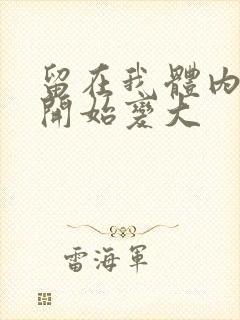 留在我體內
開始變大
雷海軍